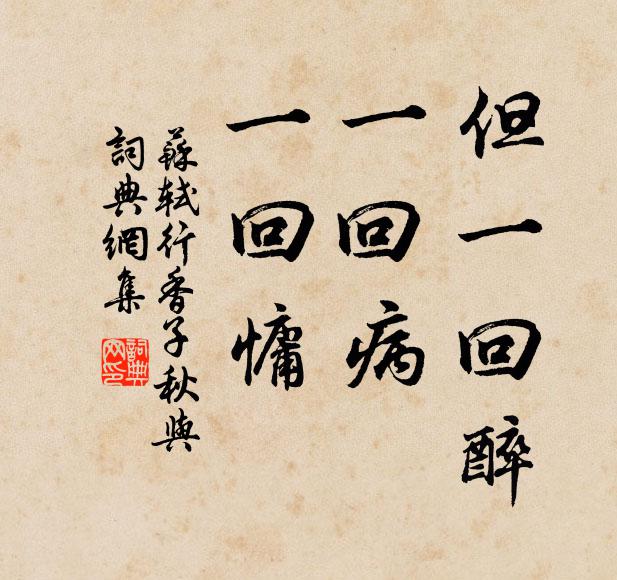 但一回醉
一回病
一回慵
蘇軾行香子秋與
詞典網集
詞典
网印